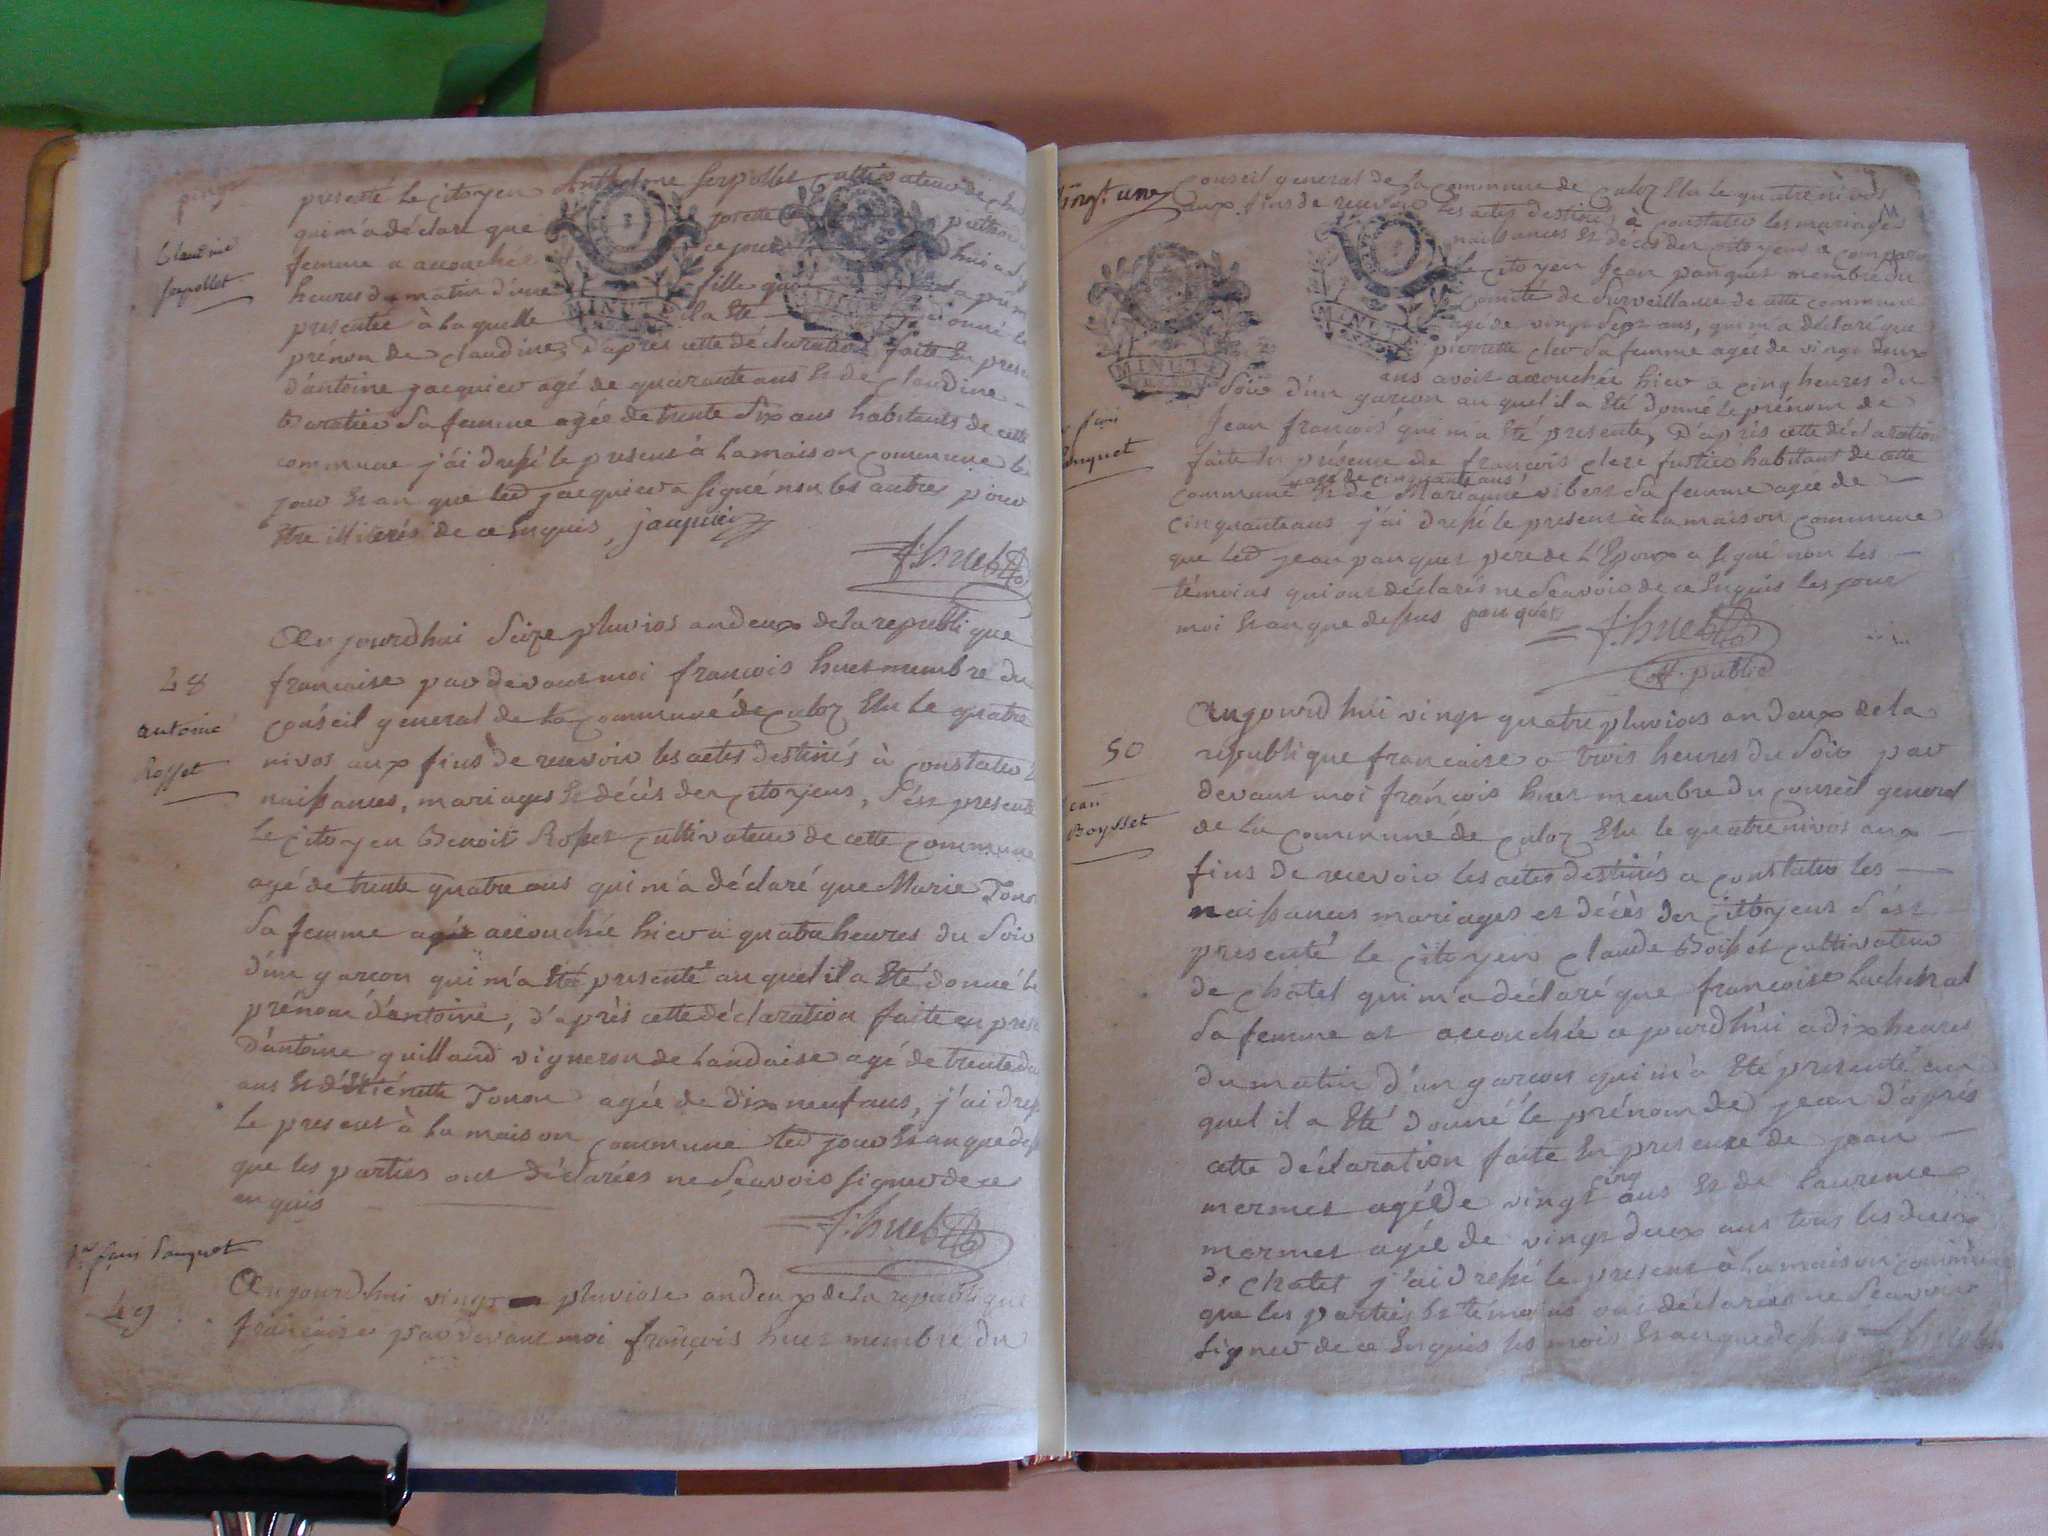 Claudine
Serpollet
presenté le Citoyen Anthelme Serpollet Cultivateur de
qui m'a déclaré que
femme a accouchée ce jour
heures du matin d'une fille qui
presentée à laquelle il a Eté donné le
prénom de Claudine, D'apres cette déclaration faite En
d'antoine jacquier agé de quarante ans Et de Claudine
sa femme agée de trente Six ans habitants de cette
commune j'ai dressé le present à la maison commune le
jour Et an que led jacquier a signé non les autres pour
Etre illiterés de ce Enquis, jacquier
f: huet
48
antoine
Rosset
Aujourdhui Seize pluvios an deux de la republique
francaise par devant moi francois huet membre du
Conseil general de la Commune de Culoz Elu le quatre
nivos aux fins de recevoir les actes destinés à Constater
naissances, mariages Et décés des Citoyens, S'est presenté
le Citoyen Benoit Rosset Cultivateur de cette Commune
agé de trente quatre ans qui m'a déclaré que Marie
Sa femme accouchée hier a quatre heures du Soir
d'un garcon qui m'a Eté presenté auquel il a Eté donné le
prénom d'antoine, d'aprés cette déclaration faite en
d'antoine guilland vigneron de Landaise agé de trente
ans Et d'Etiénette Tonon agée de dix neuf ans, j'ai
le present à la maison commune led jour Et an que
que les parties ont déclarées ne Sçavoir signer de ce
enquis
f: huet
jn fçois Panquet
49
Aujourdhui vingt pluviose an deux de la republique
francaise par devant moi françois huet membre du
vingt une
Conseil general de la Commune de Culoz Elu le quatre nivos
aux fins de recevoir les actes destinés à constater les mariages
naissances Et décés des citoyens a comparu
le citoyen Jean panquet membre du
comité de Surveillance de cette commune
agé de vingt deux ans, qui m'a déclaré que
pierrette Sa femme agée de vingt deux
ans avoit accouchée hier a Cinq heures du
Soir d'un garcon auquel il a Eté donné le prénom de
fçois
panquet
Jean francois qui m'a Eté presenté, D'aprés cette déclaration
faite En présence de françois Clerc habitant de cette
agé de cinquante ans
commune Et de Marianne vibert Sa femme agée de
cinquante ans j'ai dressé le present à la maison commune
que led jean panquet pere de l'Epoux a signé non les
témoins qui ont déclarés ne Sçavoir de ce Enquis les jour
moi Et an que dessus panquet
f: huet
off. public
50
jean
Boysset
Aujourdhui vingt quatre pluvios an deux de la
republique francaise a trois heures du Soir par
devant moi françois huet membre du conseil general
de la Commune de Culoz Elu le quatre nivos aux
fins de recevoir les actes destinés a constater les
naissances mariages et décès des Citoyens S'est
presenté le Citoyen Claude Boisset Cultivateur
de Chatel qui m'a déclaré que francoise Lachenal
Sa femme at accouchée aujourdhui a dix heures
du matin d'un garcon qui m'a Eté presenté au
quel il a Eté donné le prénom de jean d'aprés
cette déclaration faite En presence de jean
cinq
mermet agé de vingt ans Et de Laurence
mermet agée de vingt deux ans tous les deux
de Chatel j'ai dressé le present à la maison commune
que les parties Et témoins ont déclarés ne Sçavoir
signer de ce Enquis les mois Et an que dessus f: huet